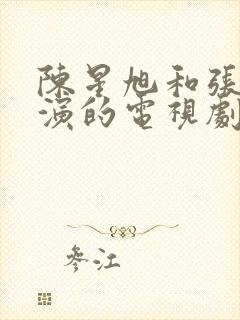 陳星旭和張
演的電視劇
參江